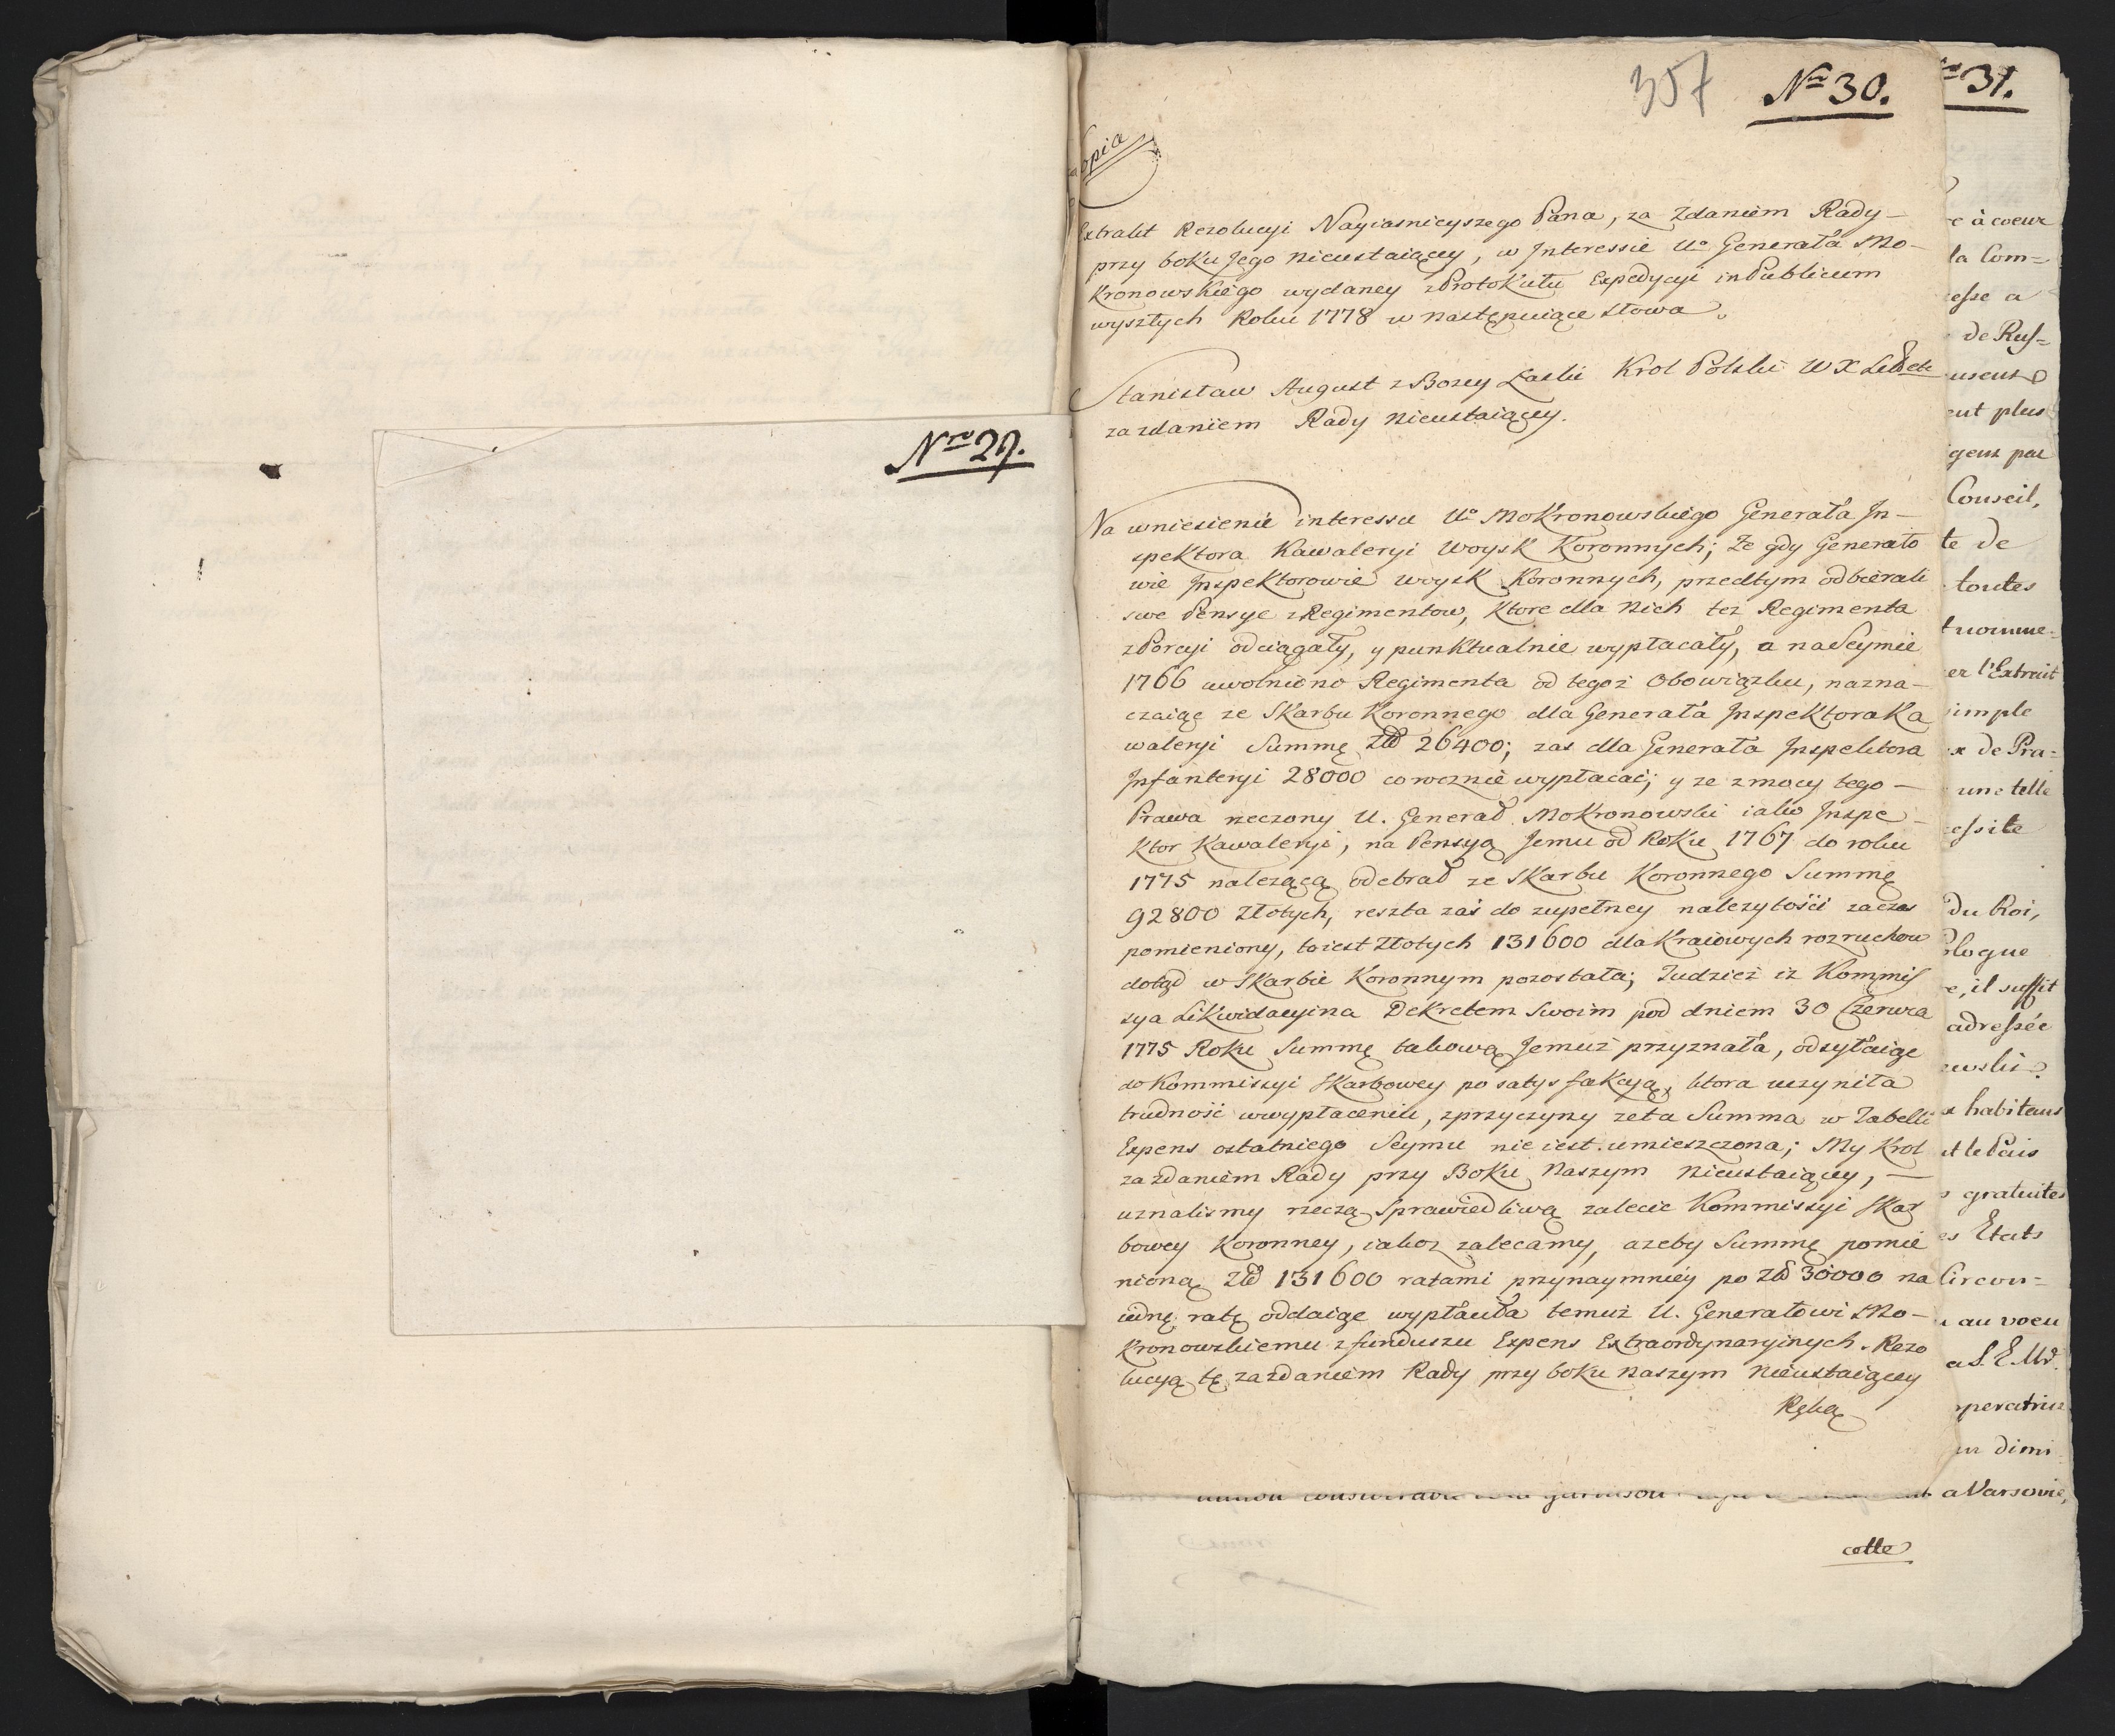 Nro 29.
357
Nro 30.
opia
Extrakt Rezolucyi Nayiasnieyszego Pana, za Zdaniem Rady-
przy boku Jego Nieustaiącey, w Interessie Uo Generała Mo-
kronowskiego wydaney z Protokułu Expedycyi in Publicum
wyszłych Roku 1778 w następuiące słowa.
Stanisław August z Bozey Łaski Krol Polski W X Lit etc
za zdaniem Rady Nieustaiącey.
Na wniesienie interessu Uo Mokronowskiego Generała In-
spektora Kawaleryi Woysk Koronnych; Ze gdy Generało
wie Inspektorowie woysk Koronnych, przedtym odbierali
swe Pensye z Regimentow, ktore dla Nich też Regimenta
z Porcyi odciągały, y punktualnie wypłacały, a na Seymie
1766 uwolniono Regimenta od tegoż Obowiązku, nazna-
czaiąc ze Skarbu Koronnego dla Generała Inspektora Ka
waleryi Summę Złł 26400; zas dla Generała Inspektora
Infanteryi 28000 corocznie wypłacać; y ze z mocy tego-
Prawa rzeczony U. Generał Mokronowski iako Inspe-
ktor Kawaleryi, na Pensyą Jemu od Roku 1767 do roku
1775 nalezącą odebrał ze Skarbu Koronnego Summę
92800 Złotych, reszta zaś do zupełney nalezytości za czas
pomieniony, to iest Złotych 131600 dla Kraiowych rozruchow
dotąd w Skarbie Koronnym pozostała; Tudzież iż Kommis
sya Likwidacyina Dekretem Swoim pod dniem 30 Czerwca
1775 Roku Summę takową Jemuż przyznała, odsyłaiąc
do Kommissyi Skarbowey po satysfakcyą, ktora uczyniła
trudność w wypłaceniu, z przyczyny ze ta Summa w Tabelli
Expens ostatniego Seymu nie iest umieszczona; My Krol
za Zdaniem Rady przy Boku Naszym Nieustaiącey,-
uznalismy rzeczą Sprawiedliwą zalecic Kommissyi Skar
bowey Koronney, iakoz zalecamy, azeby Summę pomie
nioną Złł 131600 ratami przynaymniéy po Złł 30000 na
iedną ratę oddaiąc wypłaciła temuż U. Generałowi Mo-
kronowskiemu z funduszu Expens Extraordynaryinych. Rezo
lucyą tę za Zdaniem Rady przy boku Naszym Nieustaiącey
Ręką
ro 31.
e à coeur
la Com=
cesse a
de Rus=
eut plus
Conseil,
te de
toutes
nomme=
er l'Extrait
simple
x de Pra=
une telle
cessite
du Roi,
ologne
e, il suffit
adressée
owski
x habitans
et le Païs
gratuites
es Etats
Circon=
au voeu
a S. E. Mr.
mperatrice
ur dimi
a Varsovie,
cette